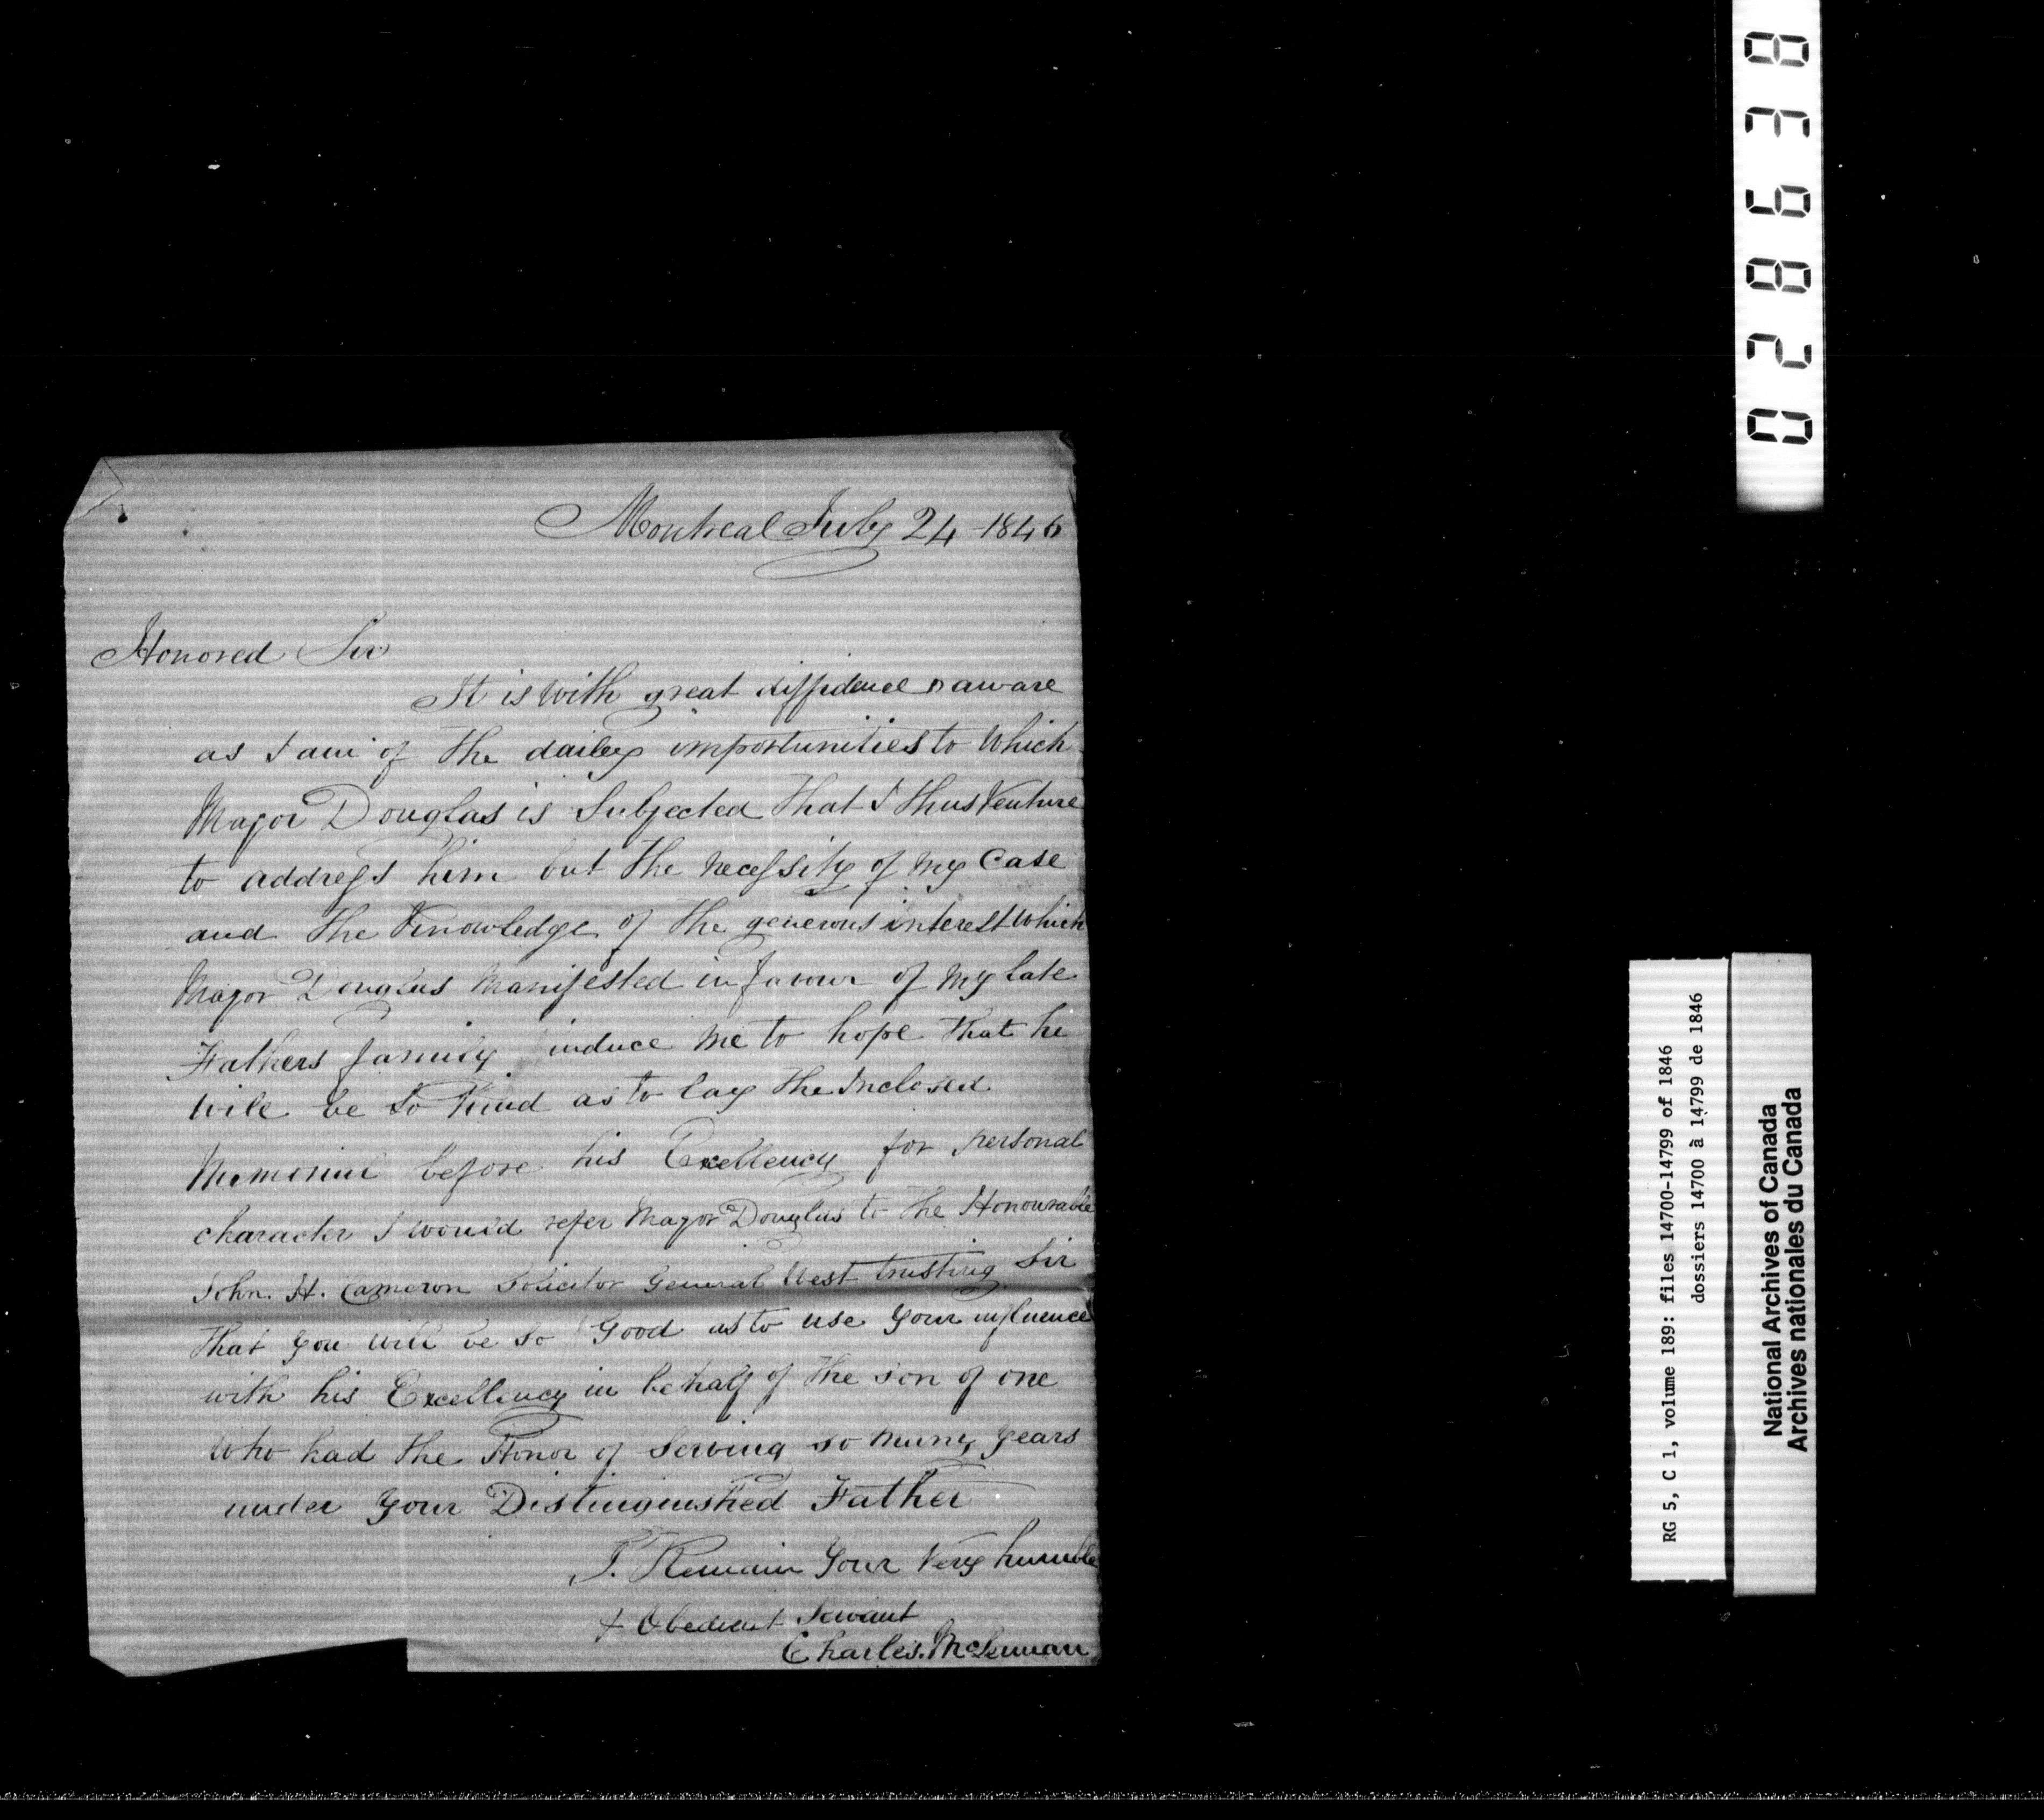 Montreal July 24 - 1846
Honored Sir
It is with great diffidence aware
as I am of the dailey importunities to which
Major Douglas is Subjected That I thus Venture
to address him but the necessity of my Case
and the Knowledge of the generous interest which
Major Douglas Manifested in favour of my late
Fathers family induce me to hope that he
will be so kind as to lay the Inclosed
Memorial before his Excellency for personal
character I would refer Major Douglas to the Honourable
John. H. Cameron Solicitor General West trusting Sir
that you will be so Good as to use your influence
with his Excellency in behalf of the son of one
who had the Honor of Serving so many years
under your Distinguished Father
I. Remain Your Very humble
& Obedient Servant
Charles. McLennan
028638
RG 5, C 1, volume 189: files 14700-14799 of 1846
dossiers 14700 à 14799 de 1846
National Archives of Canada
Archives nationales du Canada